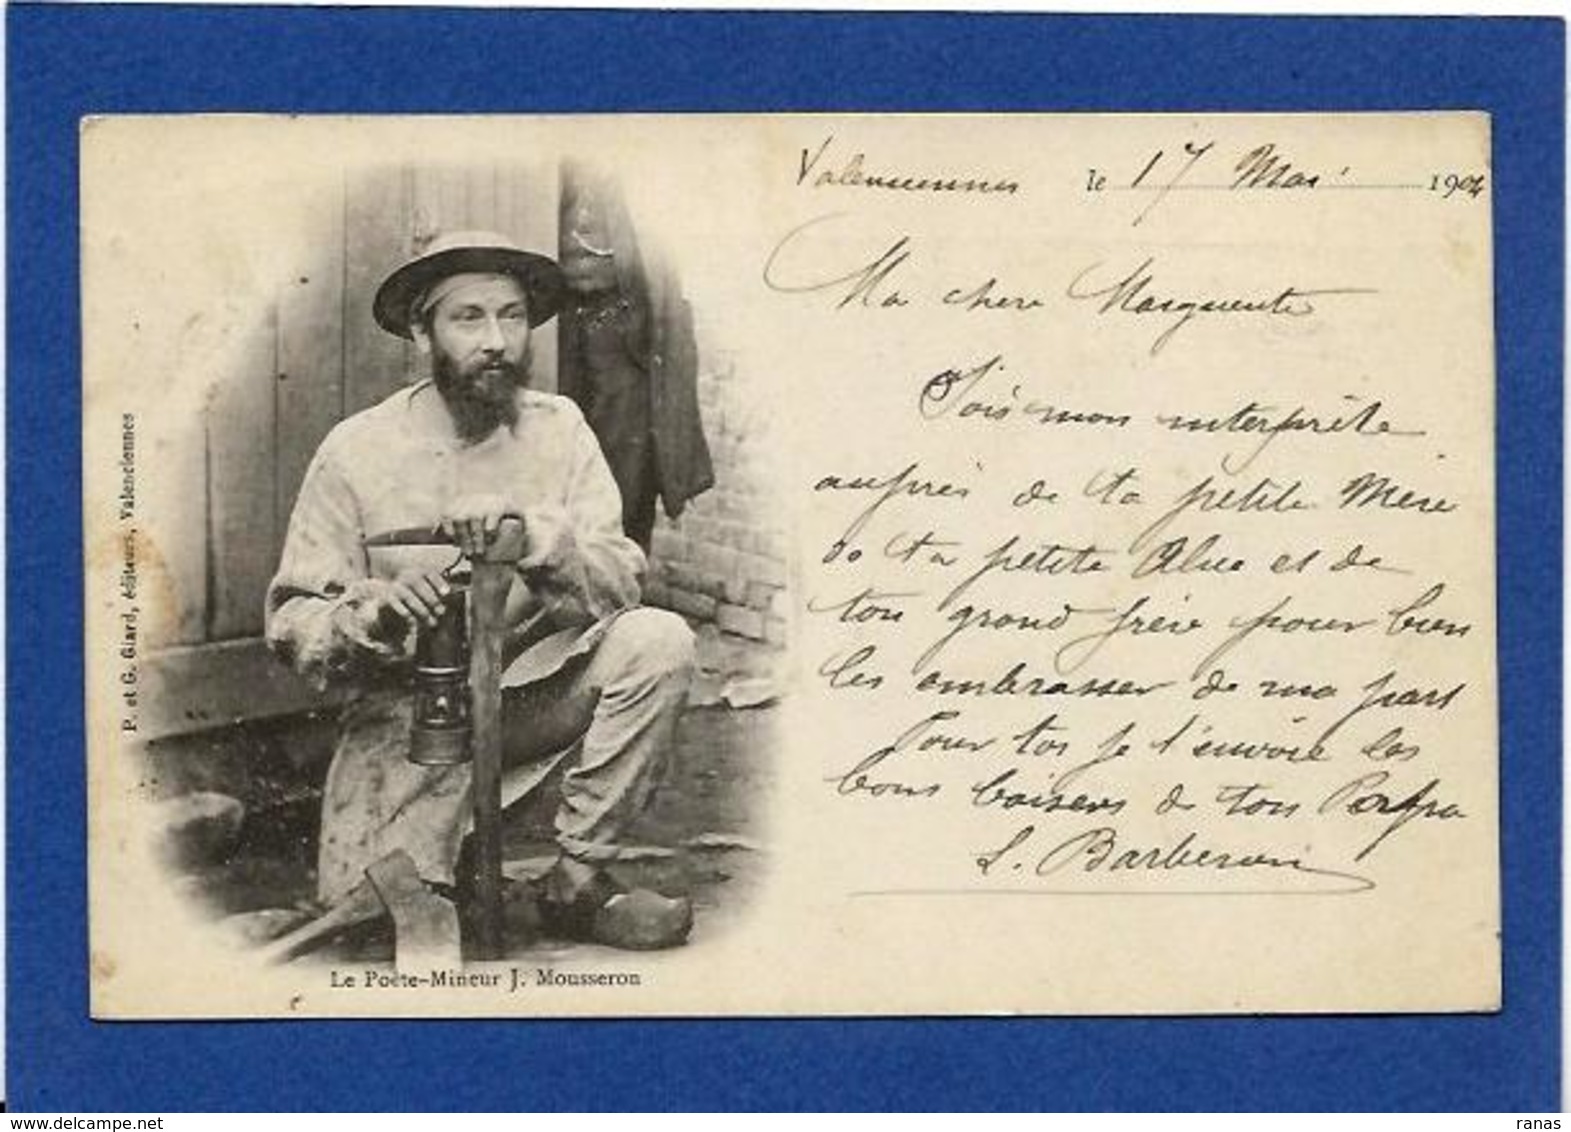 Valenciennes le 17 Mai 1904
Ma chere Marguerite
Sois mon interprête
auprès de ta petite Mère
de ta petite Alice et de
ton grand frère pour bien
les embrasser de ma part
Pour toi je t'envoie les
bons baisers de ton Papa
L. Barberon
P. et G. Giard, éditeurs, Valenciennes
Le Poète-Mineur J. Mousseron
www.delcampe.net
ranas